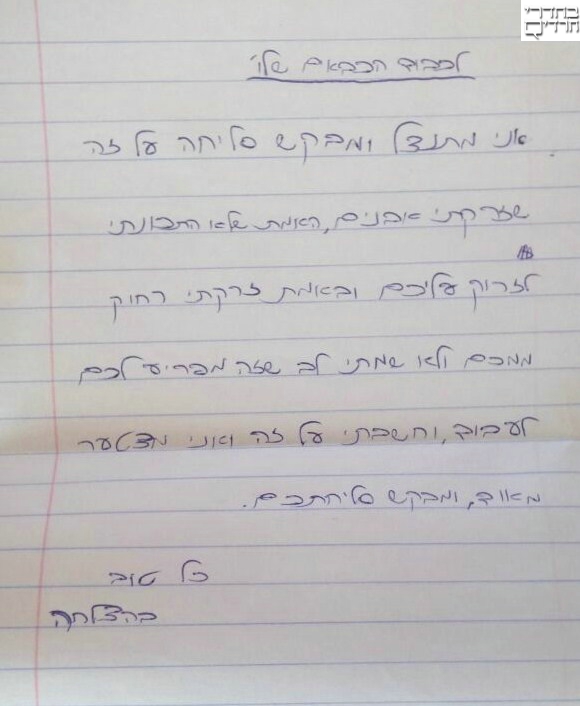 בחדרי
חרדים
לכבוד הכבאים שלי
אני מתנצל ומבקש סליחה על זה
שזרקתי אבנים, האמת שלא התכוונתי
לזרוק עליכם ובאמת זרקתי רחוק
ממכם ולא שמתי לב שזה מפריע לכם
לעבוד, וחשבתי על זה ואני מצטער
מאוד, ומבקש סליחתכם.
כל טוב
בהצלחה